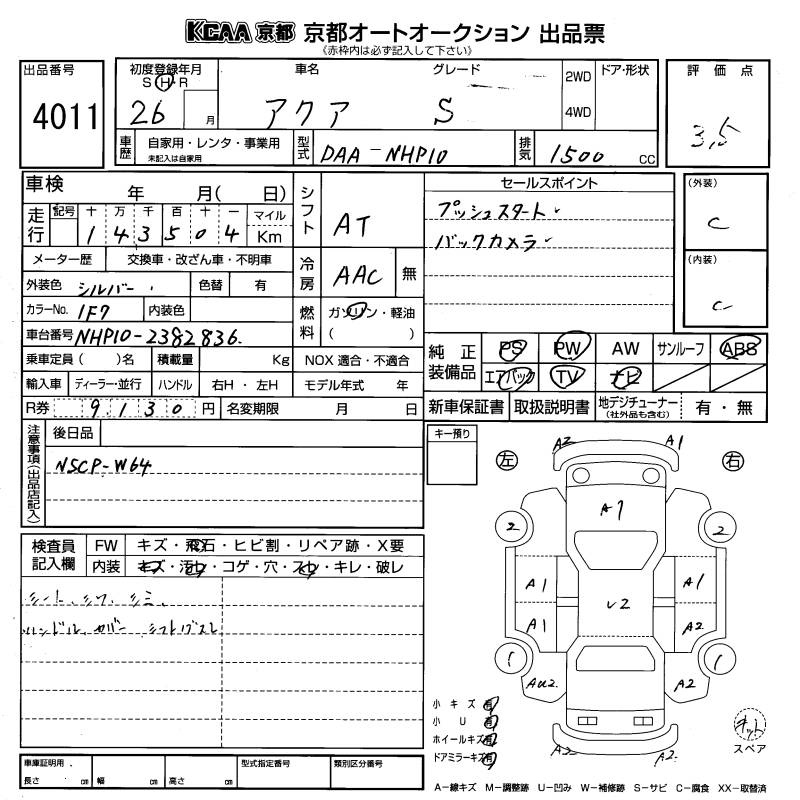 KCAA 京都 京都オートオークション 出品票
《赤枠内は必ず記入して下さい》
出品番号
4011
初度登録年月
S H R
26 月
車名
アクア
グレード
S
2WD
4WD
ドア・形状
評価点
3.5
車歴
自家用・レンタ・事業用
未記入は自家用
型式
DAA-NHP10
排気
1500 cc
車検 年 月( 日)
走行
記号 十 万 千 百 十 一 マイル
1 4 3 5 0 4 Km
メーター歴 交換車・改ざん車・不明車
外装色 シルバー 色替 有
カラーNo. 1F7 内装色
車台番号 NHP10-2382836
乗車定員( )名 積載量 Kg
輸入車 ディーラー・並行 ハンドル 右H・左H
R券 9130円 名変期限 月 日
シフト
AT
冷房
AAC 無
燃料
ガソリン・軽油
( )
NOX 適合・不適合
モデル年式 年
セールスポイント
プッシュスタート
バックカメラ
(外装)
C
(内装)
C
純正装備品
PS PW AW サンルーフ ABS
エアバック TV ナビ
新車保証書 取扱説明書 地デジチューナー (社外品も含む) 有・無
注意事項(出品店記入)
後日品
NSCP-W64
キー預り
左
右
A2 A1
A1
2 2
A1 A1
U2
A1 A2
1 1
AU2 A2
A2 A2
検査員記入欄
FW キズ・飛石・ヒビ割・リペア跡・X要
内装 キズ・汚レ・コゲ・穴・スレ・キレ・破レ
シート、シワ、シミ
ハンドル、カバー シフトノブスレ
小キズ 有
小U 有
ホイールキズ 有
ドアミラーキズ 有
キット
スペア
車庫証明用
長さ cm 幅 cm 高さ cm
型式指定番号
類別区分番号
A−線キズ M−調整跡 U−凹み W−補修跡 S−サビ C−腐食 XX−取替済